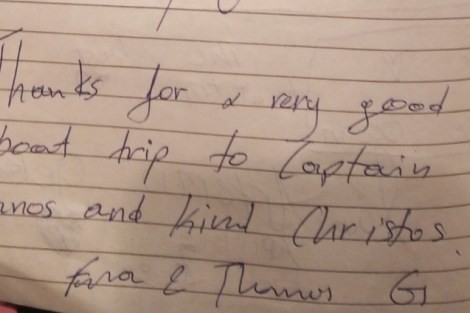 Thanks for a very good
boat trip to Captain
anos and kind Christos.
&